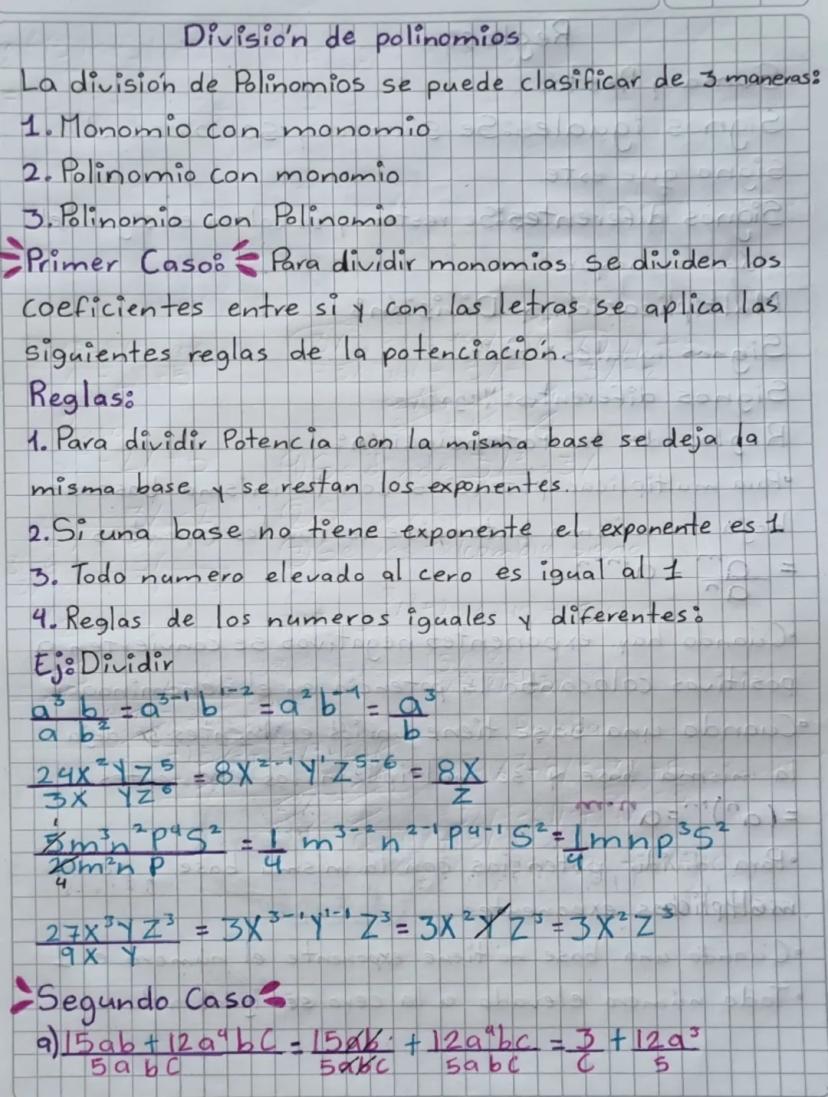 División de polinomios
La división de Polinomios se puede clasificar de 3 maneras:
1. Monomio con monomio
2. Polinomio con monomio
3. Polinomio con Polinomio
Primer Caso: Para dividir monomios se dividen los
coeficientes entre si y con las letras se aplica las
siguientes reglas de la potenciación.
Reglas:
1. Para dividir Potencia con la misma base se deja la
misma base y se restan los exponentes.
2. Si una base no tiene exponente el exponente es 1
3. Todo numero elevado al cero es igual al 1
4. Reglas de los numeros iguales y diferentes:
Ej: Dividir
a³ b / a b² = a³⁻¹ b¹⁻² = a² b⁻¹ = a³ / b
24x² y z⁵ / 3x y z⁶ = 8x²⁻¹ y¹ z⁵⁻⁶ = 8x / z
1 5m³ n² p⁴ s² / 20 m² n p 4 = 1/4 m³⁻² n²⁻¹ p⁴⁻¹ s² = 1/4 m n p³ s²
27x³ y z³ / 9x y = 3x³⁻¹ y¹⁻¹ z³ = 3x² y z³ = 3x² z³
Segundo Caso
a) 15ab + 12a⁴bc / 5abc = 15ab / 5abc + 12a⁴bc / 5abc = 3/c + 12a³/5